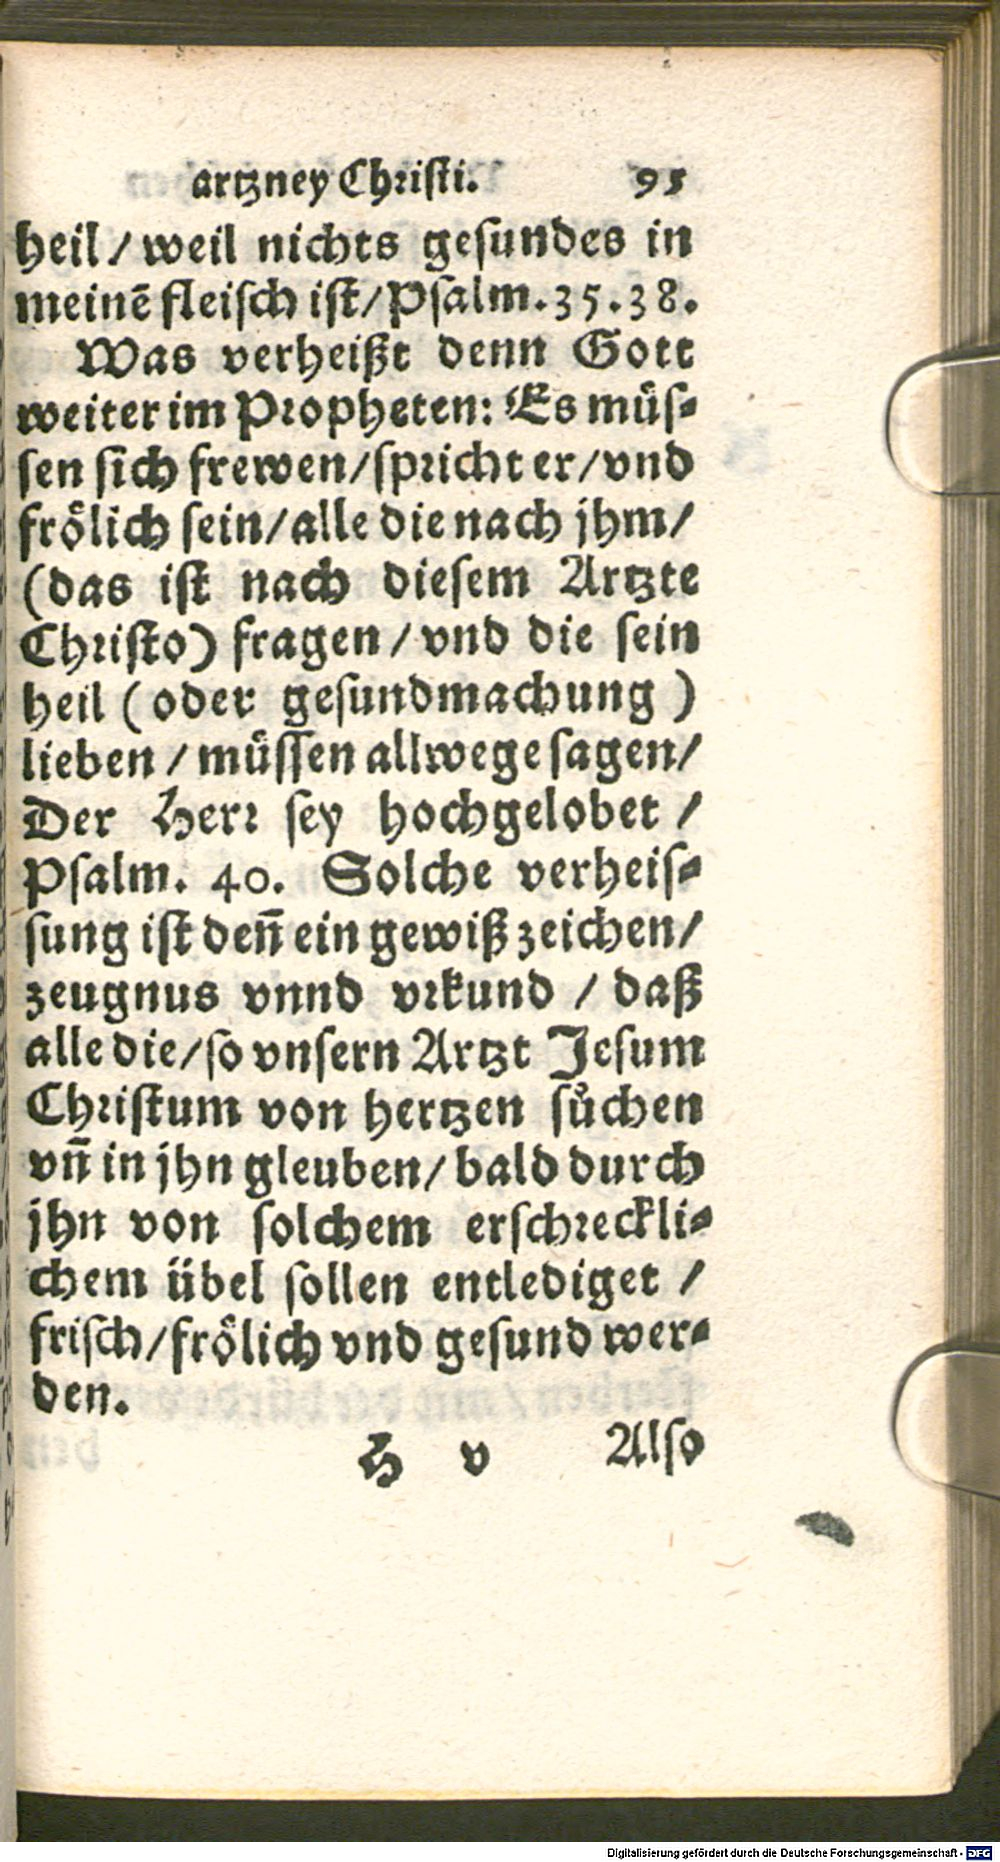 artzney Christi. 95
heil / weil nichts gesundes in
meinē fleisch ist / Psalm. 35. 38.
Was verheißt denn Gott
weiter im Propheten: Es müs-
sen sich frewen / spricht er / vnd
froͤlich sein / alle die nach jhm /
(das ist nach diesem Artzte
Christo) fragen / vnd die sein
heil (oder gesundmachung)
lieben / muͤssen allwege sagen /
Der Herr sey hochgelobet /
Psalm. 40. Solche verheis-
sung ist deñ ein gewiß zeichen /
zeugnus vnnd vrkund / daß
alle die / so vnsern Artzt Jesum
Christum von hertzen sůchen
vñ in jhn gleuben / bald durch
jhn von solchem erschreckli-
chem übel sollen entlediget /
frisch / froͤlich vnd gesund wer-
den.
H v Also
Digitalisierung gefördert durch die Deutsche Forschungsgemeinschaft - DFG